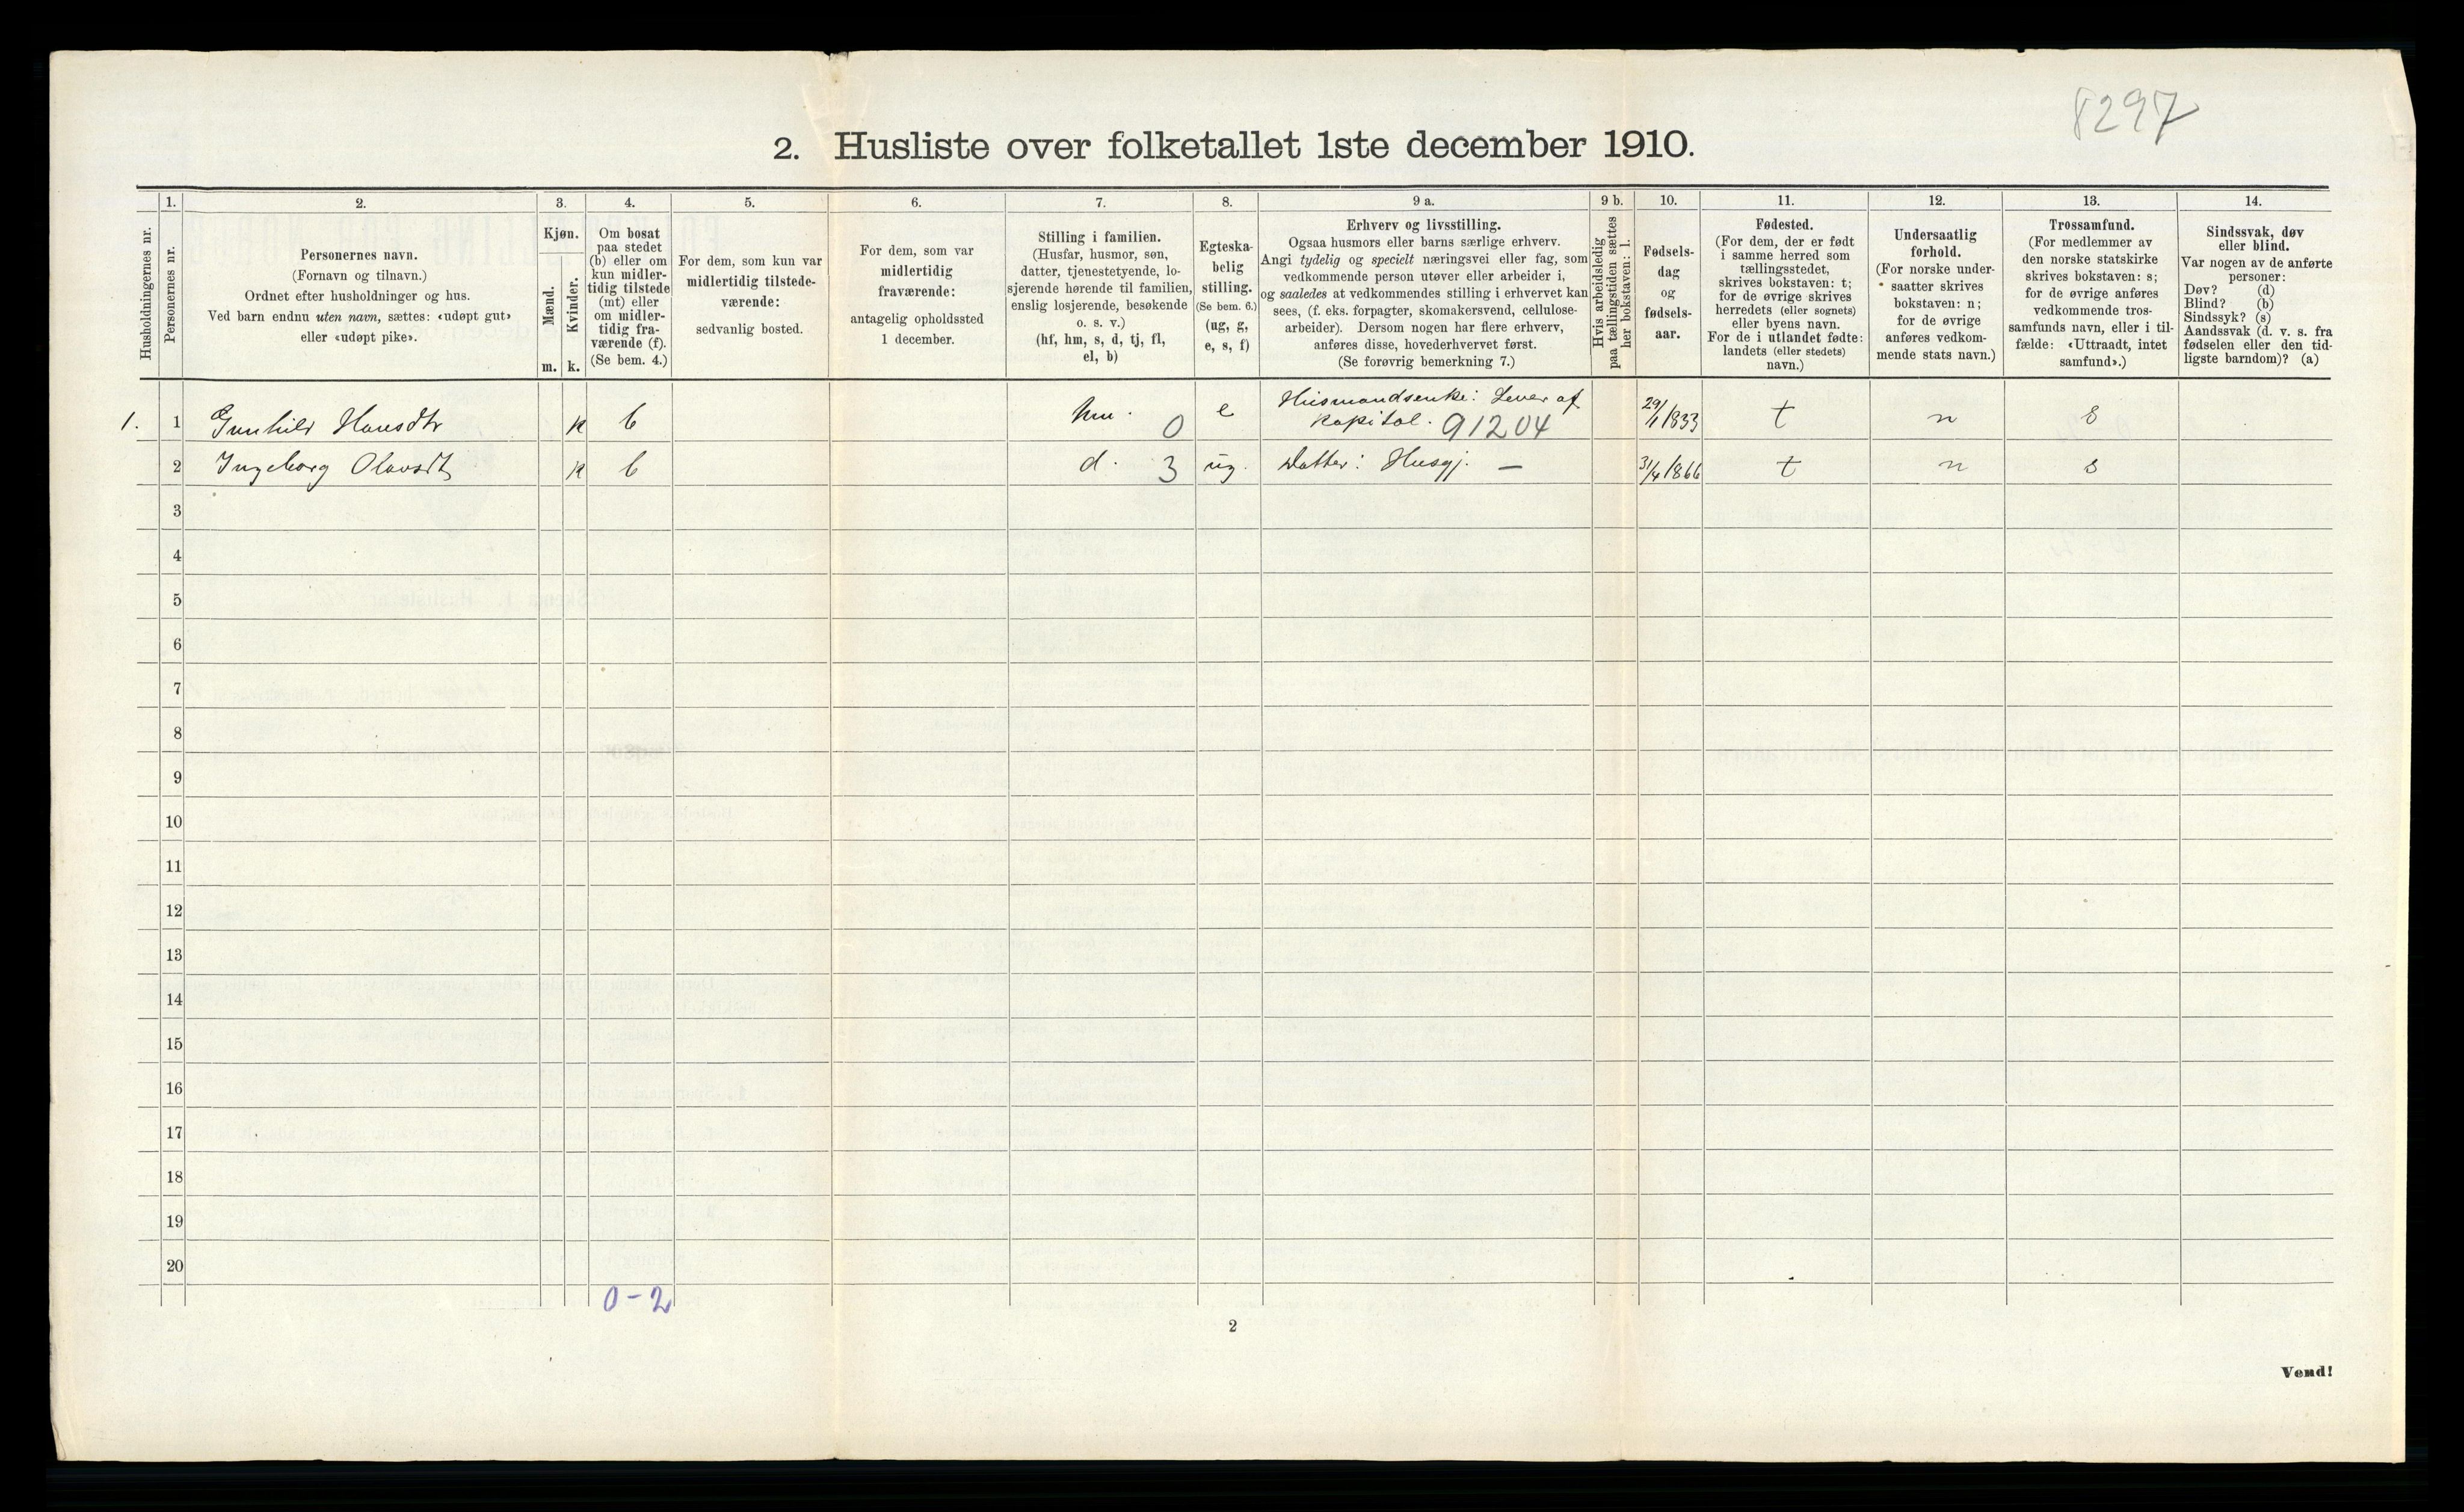 8297
2. Husliste over folketallet 1ste december 1910.
Husholdningernes nr.
1.
Personernes nr.
2.
Personernes navn.
(Fornavn og tilnavn.)
Ordnet efter husholdninger og hus.
Ved barn endnu uten navn, sættes: «udøpt gut»
eller «udøpt pike».
3.
Kjøn.
Mænd.
Kvinder.
m. k.
4.
Om bosat
paa stedet
(b) eller om
kun midler-
tidig tilstede
(mt) eller
om midler-
tidig fra-
værende (f).
(Se bem. 4.)
5.
For dem, som kun var
midlertidig tilstede-
værende:
sedvanlig bosted.
6.
For dem, som var
midlertidig
fraværende:
antagelig opholdssted
1 december.
7.
Stilling i familien.
(Husfar, husmor, søn,
datter, tjenestetyende, lo-
sjerende hørende til familien,
enslig losjerende, besøkende
o. s. v.)
(hf, hm, s, d, tj, fl,
el, b)
8.
Egteska-
belig
stilling.
(Se bem. 6.)
(ug, g,
e, s, f)
9 a.
Erhverv og livsstilling.
Ogsaa husmors eller barns særlige erhverv.
Angi tydelig og specielt næringsvei eller fag, som
vedkommende person utøver eller arbeider i,
og saaledes at vedkommendes stilling i erhvervet kan
sees, (f. eks. forpagter, skomakersvend, cellulose-
arbeider). Dersom nogen har flere erhverv,
anføres disse, hovederhvervet først.
(Se forøvrig bemerkning 7.)
9 b.
Hvis arbeidsledig
paa tællingstiden sættes
her bokstaven: l.
10.
Fødsels-
dag
og
fødsels-
aar.
11.
Fødested.
(For dem, der er født
i samme herred som
tællingsstedet,
skrives bokstaven: t;
for de øvrige skrives
herredets (eller sognets)
eller byens navn.
For de i utlandet fødte:
landets (eller stedets)
navn.)
12.
Undersaatlig
forhold.
(For norske under-
saatter skrives
bokstaven: n;
for de øvrige
anføres vedkom-
mende stats navn.)
13.
Trossamfund.
(For medlemmer av
den norske statskirke
skrives bokstaven: s;
for de øvrige anføres
vedkommende tros-
samfunds navn, eller i til-
fælde: «Uttraadt, intet
samfund».)
14.
Sindssvak, døv
eller blind.
Var nogen av de anførte
personer:
Døv? (d)
Blind? (b)
Sindssyk? (s)
Aandssvak (d. v. s. fra
fødselen eller den tid-
ligste barndom)? (a)
1. 1 Gunhild Hansdtr k b hm. 0 e Husmandsenke: Lever af
kapital. 91204 29/1 1833 t n s
2 Ingeborg Olavsdt k b d. 3 ug. Datter: Husgj. — 31/4 1866 t n s
3
4
5
6
7
8
9
10
11
12
13
14
15
16
17
18
19
20
0-2
2
Vend!